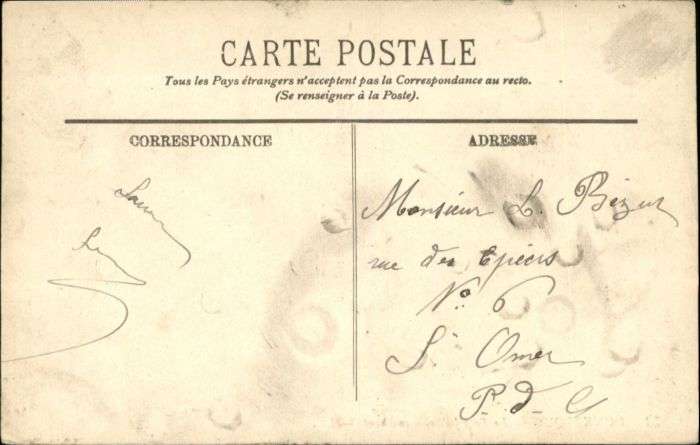 CARTE POSTALE
Tous les Pays étrangers n'acceptent pas la Correspondance au recto.
(Se renseigner à la Poste).
CORRESPONDANCE
ADRESSE
Monsieur L.
rue des Epéers
No 6
St Omer
P. d. C